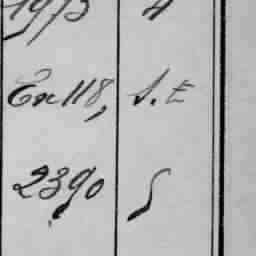 1973 4
Ex 118, S. E
2390 S